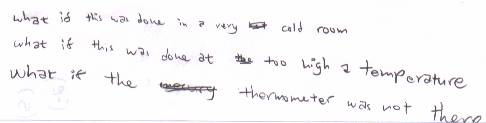 what if this was done in a very cold room
what if this was done at too high a temperature
what if the thermometer was not there